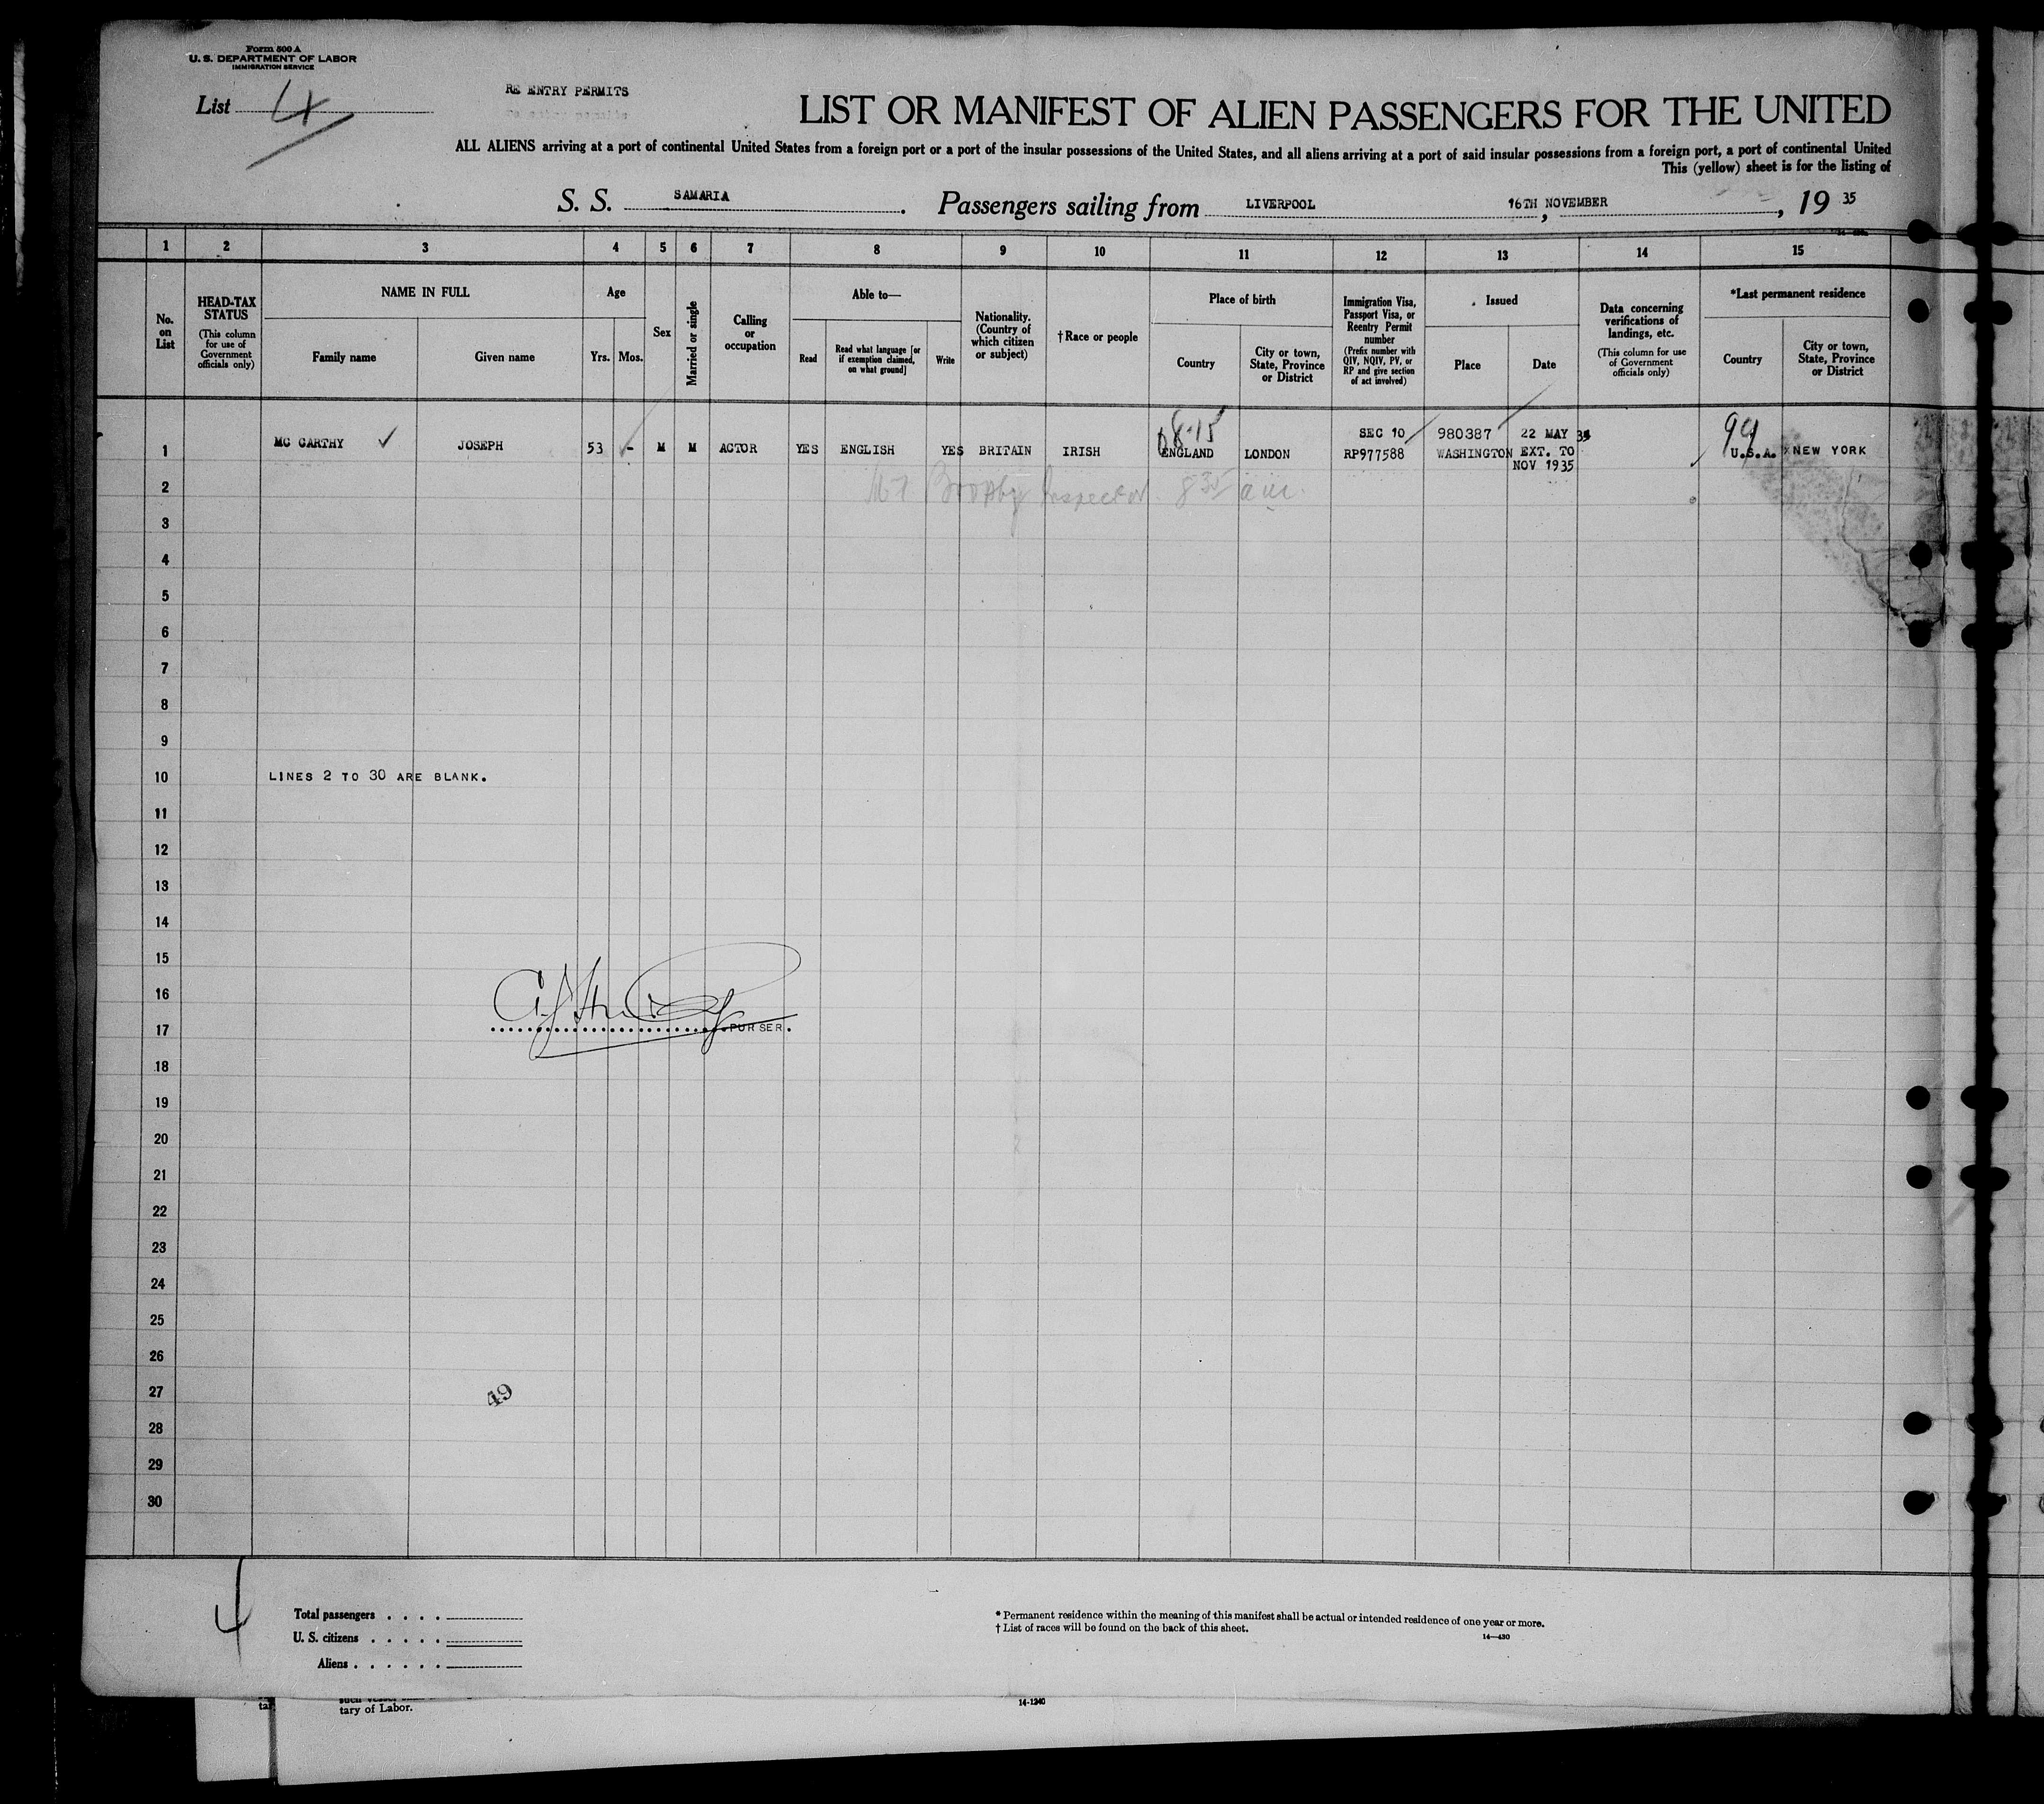 Form 500 A
U. S. DEPARTMENT OF LABOR
IMMIGRATION SERVICE
List 4
RE ENTRY PERMITS
LIST OR MANIFEST OF ALIEN PASSENGERS FOR THE UNITED
ALL ALIENS arriving at a port of continental United States from a foreign port or a port of the insular possessions of the United States, and all aliens arriving at a port of said insular possessions from a foreign port, a port of continental United
This (yellow) sheet is for the listing of
S. S. SAMARIA. Passengers sailing from LIVERPOOL 16TH NOVEMBER, 19 35
1 2 3 4 5 6 7 8 9 10 11 12 13 14 15
No. on List
HEAD-TAX STATUS
(This column for use of Government officials only)
NAME IN FULL
Family name
Given name
Age
Yrs.
Mos.
Sex
Married or single
Calling or occupation
Able to—
Read
Read what language [or if exemption claimed, on what ground]
Write
Nationality. (Country of which citizen or subject)
†Race or people
Place of birth
Country
City or town, State, Province or District
Immigration Visa, Passport Visa, or Reentry Permit number
(Prefix number with QIV, NQIV, PV, or RP and give section of act involved)
Issued
Place
Date
Data concerning verifications of landings, etc.
(This column for use of Government officials only)
*Last permanent residence
Country
City or town, State, Province or District
8-15
SEC 10 980387 22 MAY 35
99
1 MC CARTHY JOSEPH 53 - M M ACTOR YES ENGLISH YES BRITAIN IRISH ENGLAND LONDON RP977588 WASHINGTON EXT. TO U.S.A. NEW YORK
NOV 1935
2 Inspector 8 35 a.m.
3
4
5
6
7
8
9
10 LINES 2 TO 30 ARE BLANK.
11
12
13
14
15
16
17 PURSER.
18
19
20
21
22
23
24
25
26
27 49
28
29
30
4
Total passengers
U. S. citizens
Aliens
* Permanent residence within the meaning of this manifest shall be actual or intended residence of one year or more.
† List of races will be found on the back of this sheet.
14—430
tar
such vessel
tary of Labor.
14-1240